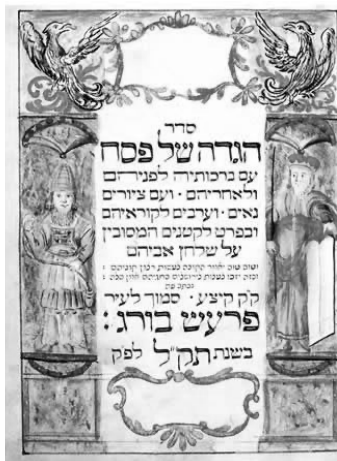 סדר
הגדה של פסח
עם ברכותיה לפניהם
ולאחריהם · ועם ציורים
נאים · וערבים לקוראיהם
ובפרט לקטנים המסובין
על שלחן אביהם
ק"ק קיצע · סמוך לעיר
פרעש בורג :
בשנת תק"ל לפ"ק